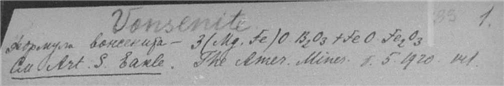 Vonsenite 85 1.
Формула вонсенита – 3(Mg, Fe)O B₂O₃ + FeO Fe₂O₃
См Art. S. Eakle. The Amer. Miner. v. 5 1920